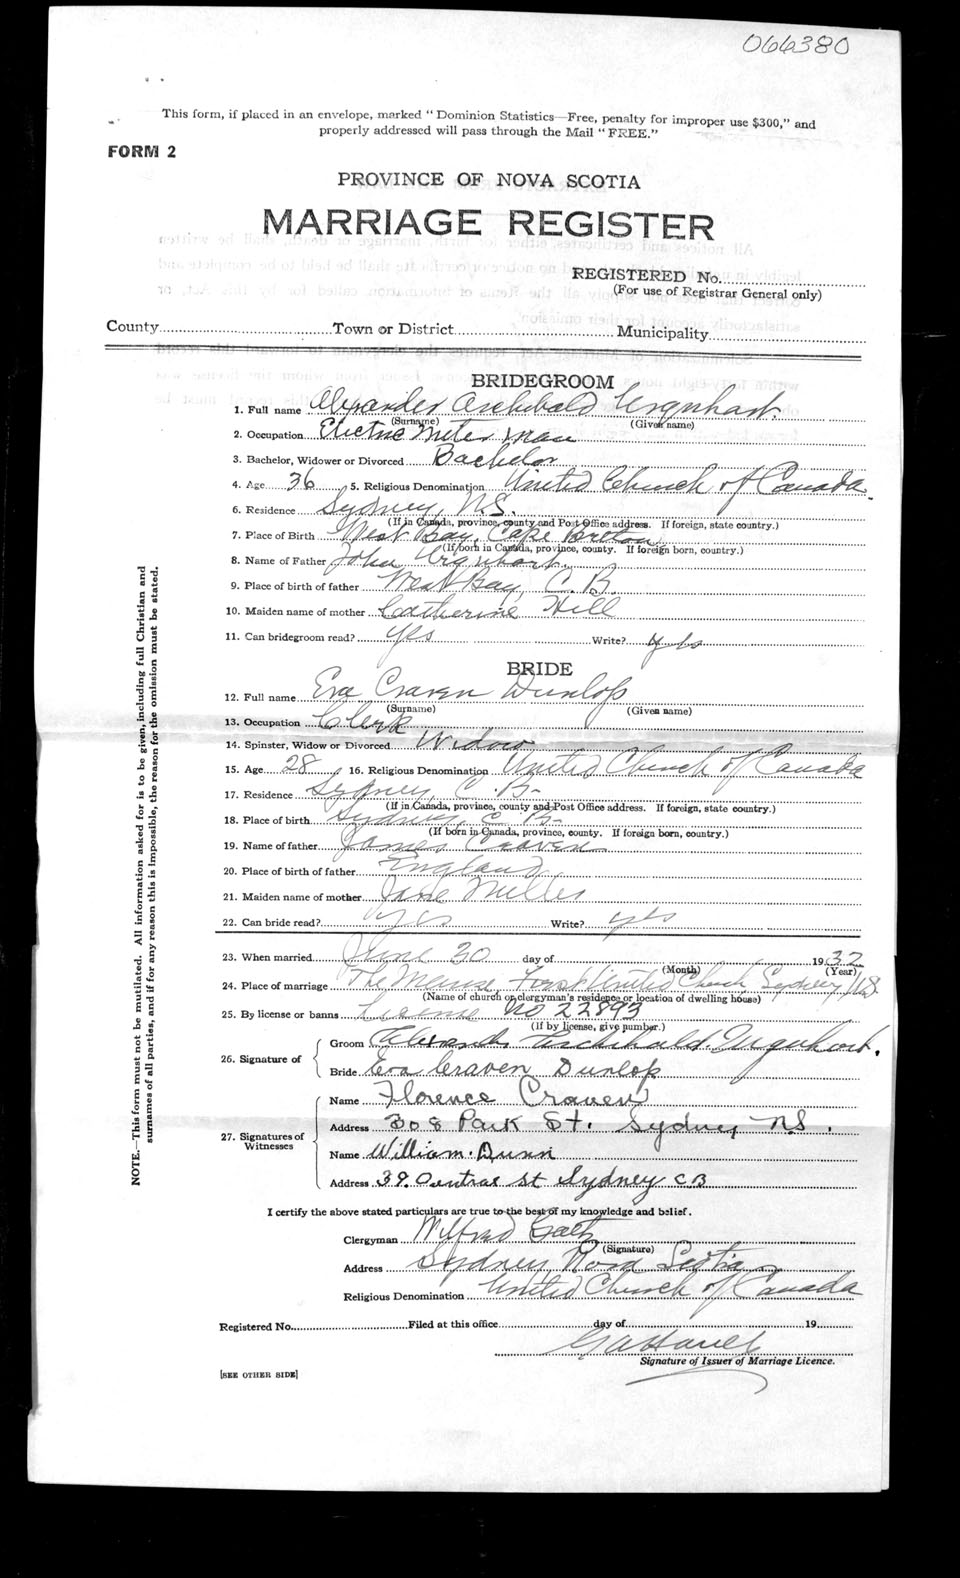 066380
This form, if placed in an envelope, marked "Dominion Statistics—Free, penalty for improper use $300," and
properly addressed will pass through the Mail "FREE."
FORM 2
PROVINCE OF NOVA SCOTIA
MARRIAGE REGISTER
REGISTERED No.
(For use of Registrar General only)
County Town or District Municipality
BRIDEGROOM
1. Full name Alexander Archibald Urquhart.
(Surname) (Given name)
2. Occupation Electric Meter Man
3. Bachelor, Widower or Divorced Bachelor
4. Age 36 5. Religious Denomination United Church of Canada.
6. Residence Sydney, N.S.
(If in Canada, province, county and Post Office address. If foreign, state country.)
7. Place of Birth West Bay, Cape Breton
(If born in Canada, province, county. If foreign born, country.)
8. Name of Father John Urquhart
9. Place of birth of father West Bay, C.B.
10. Maiden name of mother Catherine Hill
11. Can bridegroom read? yes Write? yes
BRIDE
12. Full name Eva Craven Dunlop
(Surname) (Given name)
13. Occupation Clerk
14. Spinster, Widow or Divorced Widow
15. Age 28 16. Religious Denomination United Church of Canada
17. Residence Sydney C.B-
(If in Canada, province, county and Post Office address. If foreign, state country.)
18. Place of birth Sydney, C B-
(If born in Canada, province, county. If foreign born, country.)
19. Name of father James Craven
20. Place of birth of father England
21. Maiden name of mother Jane Miller
22. Can bride read? yes Write? yes
23. When married June 30 day of 1932
(Month) (Year)
24. Place of marriage The Manse, First United Church, Sydney, N.S.
(Name of church or clergyman's residence or location of dwelling house)
25. By license or banns License No 22893
(If by license, give number.)
26. Signature of
Groom Alexander Archibald Urquhart.
Bride Eva Craven Dunlop
27. Signatures of Witnesses
Name Florence Craven
Address 308 Park St. Sydney N.S.
Name William Dunn
Address 39. Central St Sydney CB
I certify the above stated particulars are true to the best of my knowledge and belief.
Clergyman Wilfred Gaetz
(Signature)
Address Sydney, Nova Scotia
Religious Denomination United Church of Canada
Registered No. Filed at this office day of 19
Signature of Issuer of Marriage Licence.
[SEE OTHER SIDE]
NOTE.—This form must not be mutilated. All information asked for is to be given, including full Christian and
surnames of all parties, and if for any reason this is impossible, the reason for the omission must be stated.